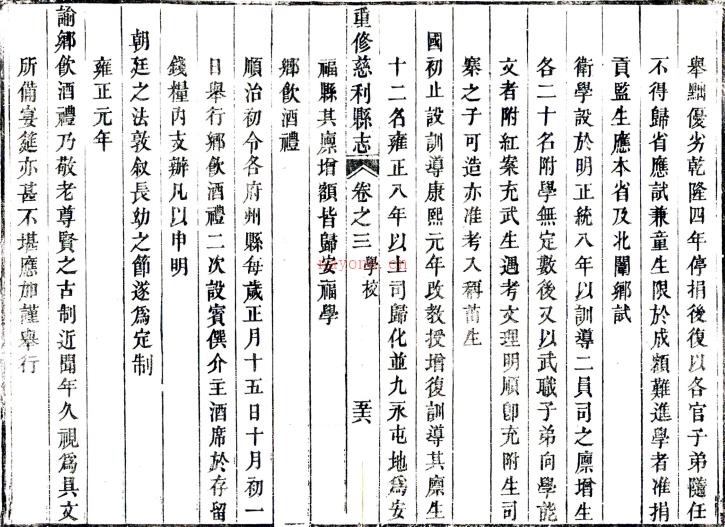 舉黜優劣乾隆四年停捐後復以各官子弟隨任
不得歸省應試兼童生限於成額難進學者准捐
貢監生應本省及北闈鄉試
衛學設於明正統八年以訓導二員司之廩增生
各二十名附學無定數後又以武職子弟向學能
文者附紅案充武生遇考文理明順卽充附生司
寨之子可造亦准考入稱苗生
國初止設訓導康熙元年改教授增復訓導其廩生
十二名雍正八年以土司歸化並九永屯地爲安
重修慈利縣志
卷之三 學校
福縣其廩增額皆歸安福學
鄉飲酒禮
順治初令各府州縣每歲正月十五日十月初一
日舉行鄉飲酒禮二次設賓僎介主酒席於存留
錢糧內支辦凡以申明
朝廷之法敦叙長幼之節遂爲定制
雍正元年
諭鄉飲酒禮乃敬老尊賢之古制近聞年久視爲具文
所備宴筵亦甚不堪應加謹舉行